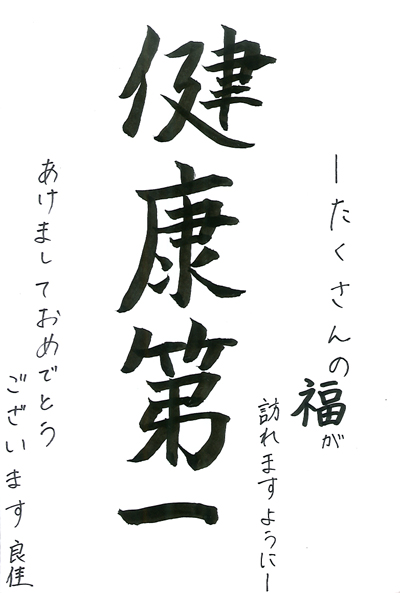 ―たくさんの福が
訪れますように―
健康第一
あけましておめでとう
ございます 良佳